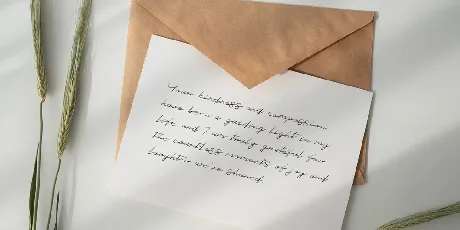 Your kindness and compassion
have been a guiding light in my
life and I am truly grateful for
the countless moments of joy and
laughter we've shared